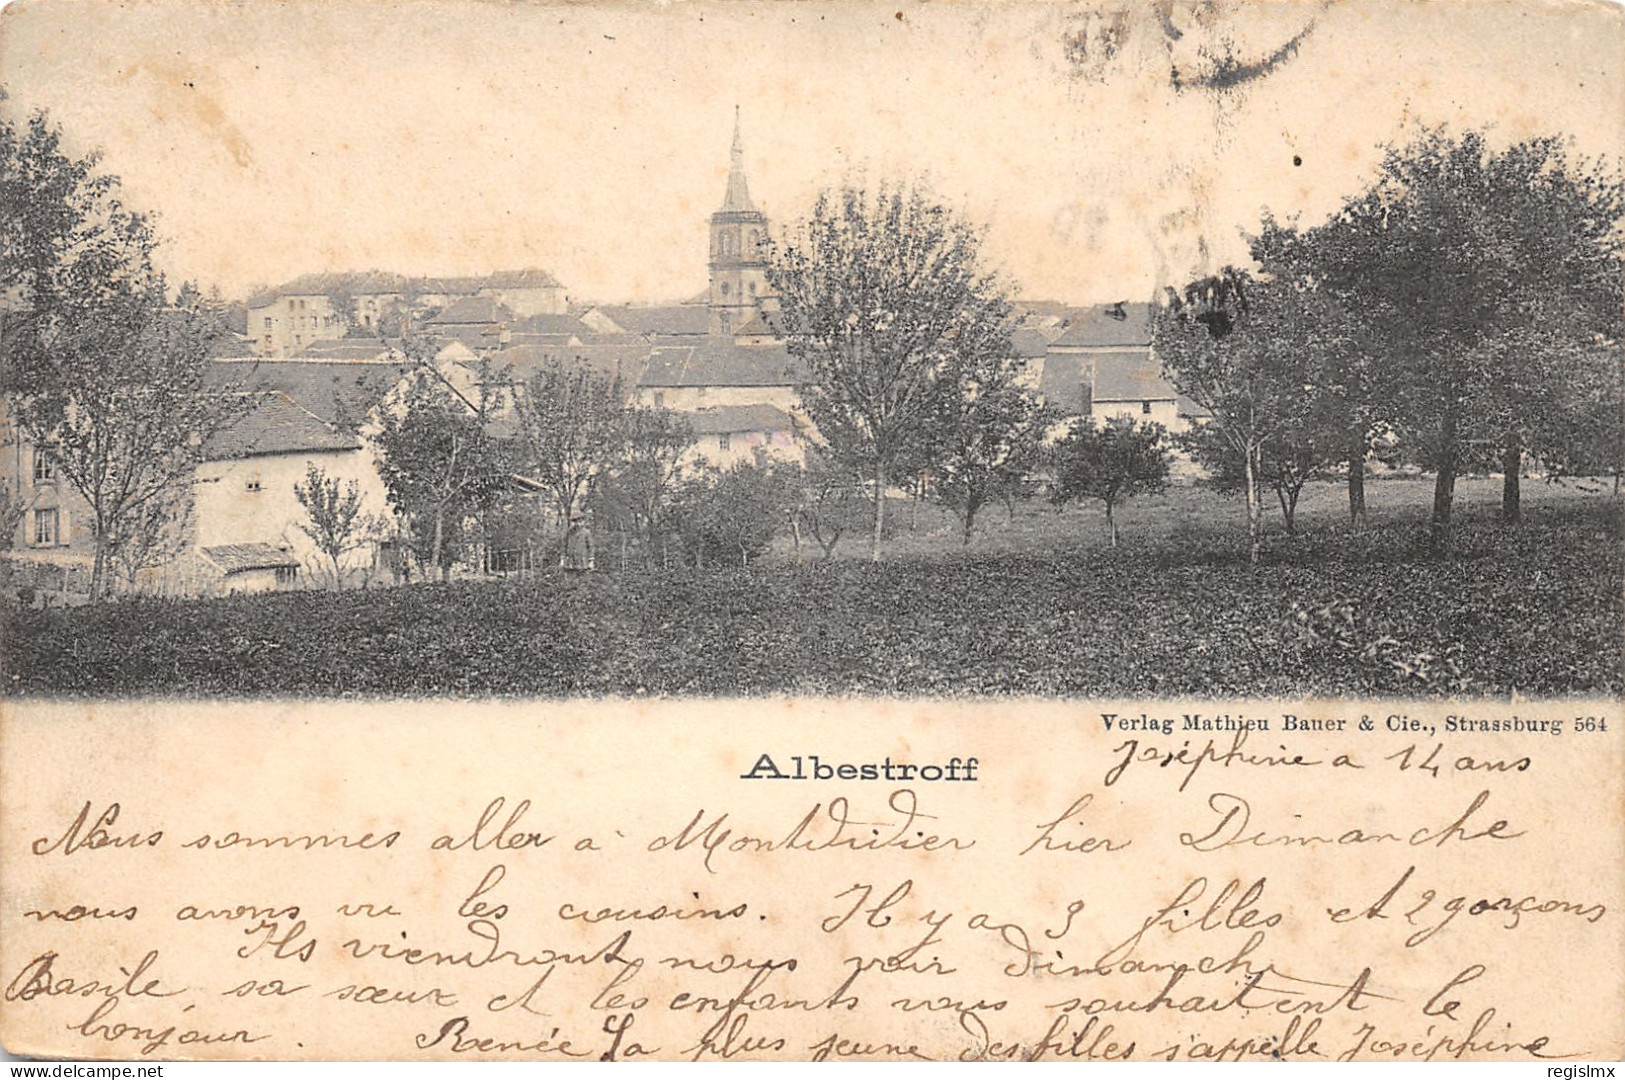 Verlag Mathieu Bauer & Cie., Strassburg 564
Albestroff
Joséphine a 14 ans
Nous sommes aller à Montdidier hier Dimanche
nous avons vu les cousins. Il y a 3 filles et 2 garçons
Ils viendront nous voir dimanche
Basile, sa sœur et les enfants vous souhaitent le
bonjour. Renée La plus jeune des filles s'appelle Joséphine
delcampe.net
regislmx